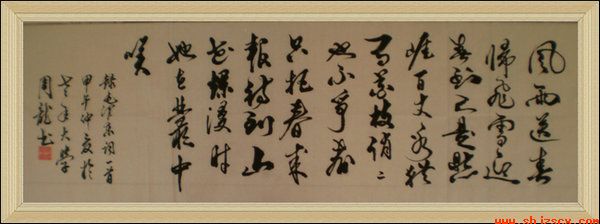 風雨送春
歸飛雪迎
春到已是懸
崖百丈冰猶
有花枝俏〻
也不争春
只把春来
報待到山
花爛漫时
她在叢中
咲
錄毛澤東詞一首
甲午仲夏於
老年大學
周龍书